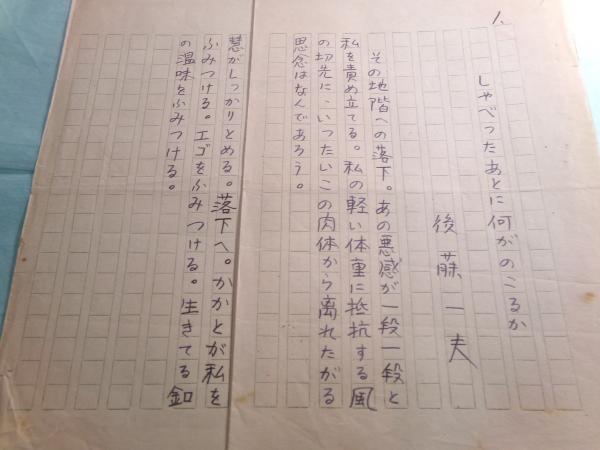 1.
しゃべったあとに何がのこるか
後藤一夫
その地階への落下。あの悪感が一段一段と
私を責め立てる。私の軽い体重に抵抗する風
の切先に、いったいこの肉体から離れたがる
思念はなんであろう。
慧がしっかりとめる。落下へ。かかとが私を
ふみつける。エゴをふみつける。生きてる釦
の温味をふみつける。